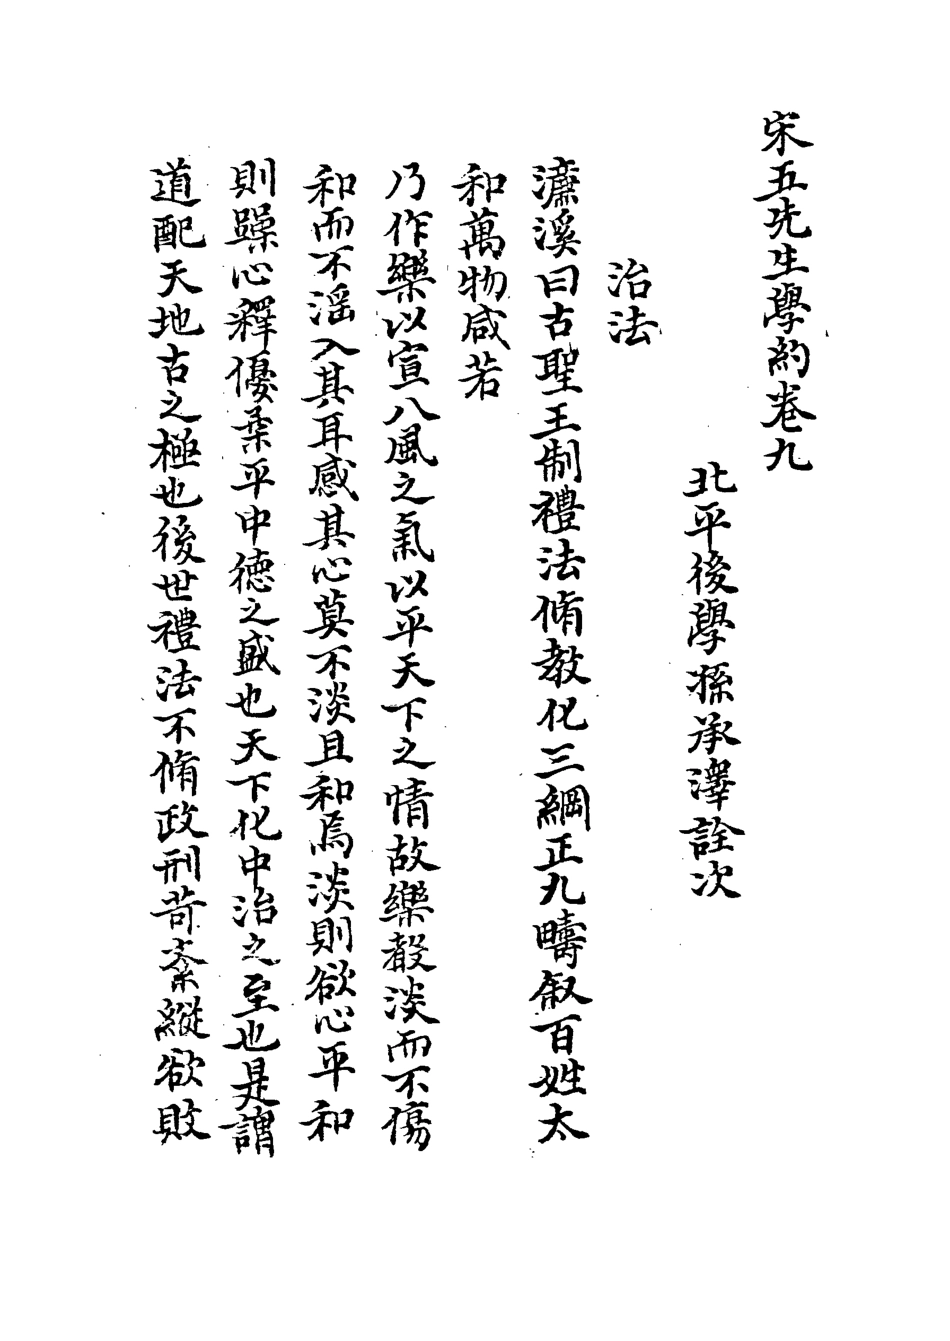 宋五先生學約卷九
北平後學孫承澤詮次
治法
濂溪曰古聖王制禮法脩教化三綱正九疇叙百姓太
和萬物咸若
乃作樂以宣八風之氣以平天下之情故樂聲淡而不傷
和而不淫入其耳感其心莫不淡且和焉淡則欲心平和
則躁心釋優柔平中德之盛也天下化中治之至也是謂
道配天地古之極也後世禮法不脩政刑苛紊縱欲敗